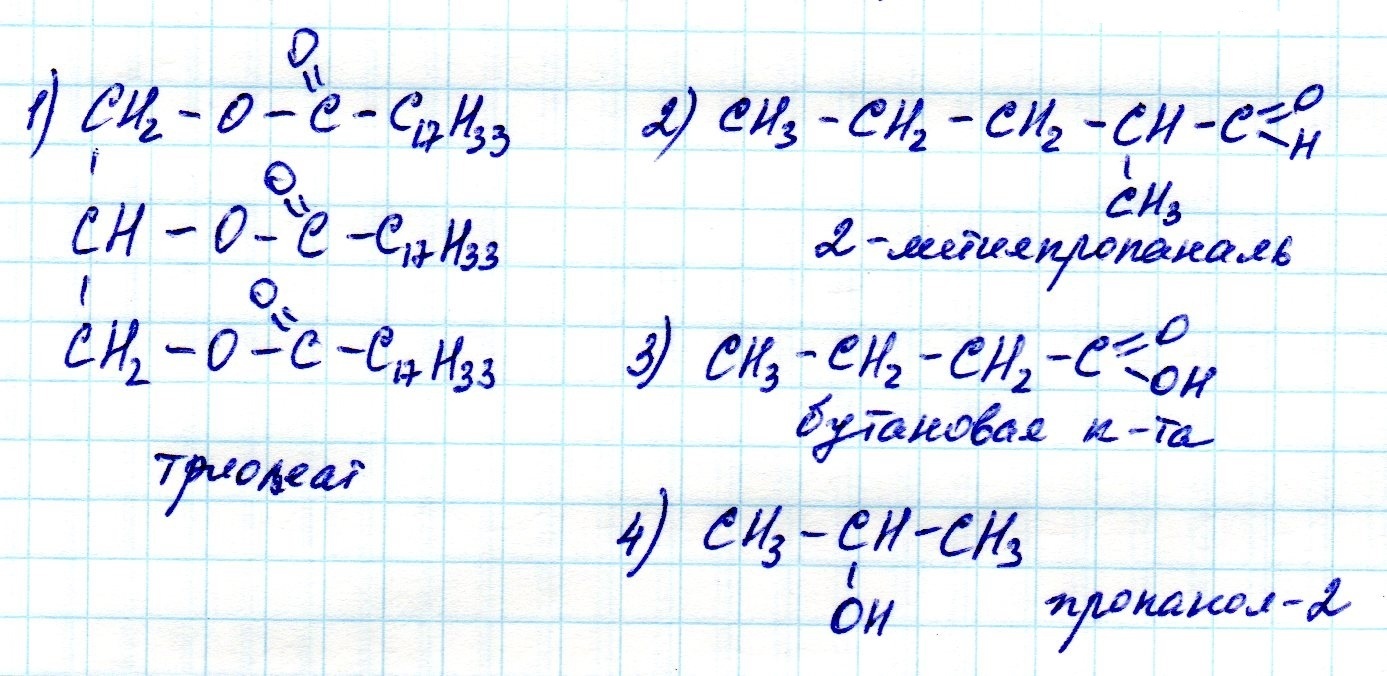 1) CH₂ – O – C – C₁₇H₃₃
O
CH – O – C – C₁₇H₃₃
O
CH₂ – O – C – C₁₇H₃₃
O
триолеат
2) CH₃ – CH₂ – CH₂ – CH – C
O
H
CH₃
2-метилпропаналь
3) CH₃ – CH₂ – CH₂ – C
O
OH
бутановая к-та
4) CH₃ – CH – CH₃
OH
пропанол-2